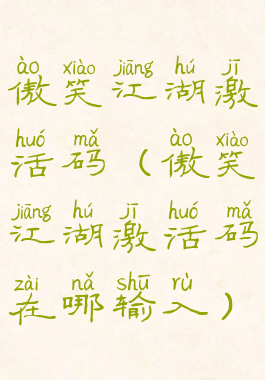 ào xiào jiāng hú jī
傲笑江湖激
huó mǎ ào xiào
活码（傲笑
jiāng hú jī huó mǎ
江湖激活码
zài nǎ shū rù
在哪输入）